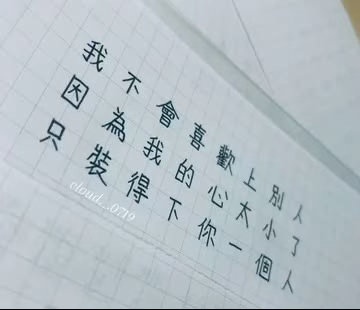 我不會喜歡上別人
因為我的心太小了
只裝得下你一個人
cloud._.0719